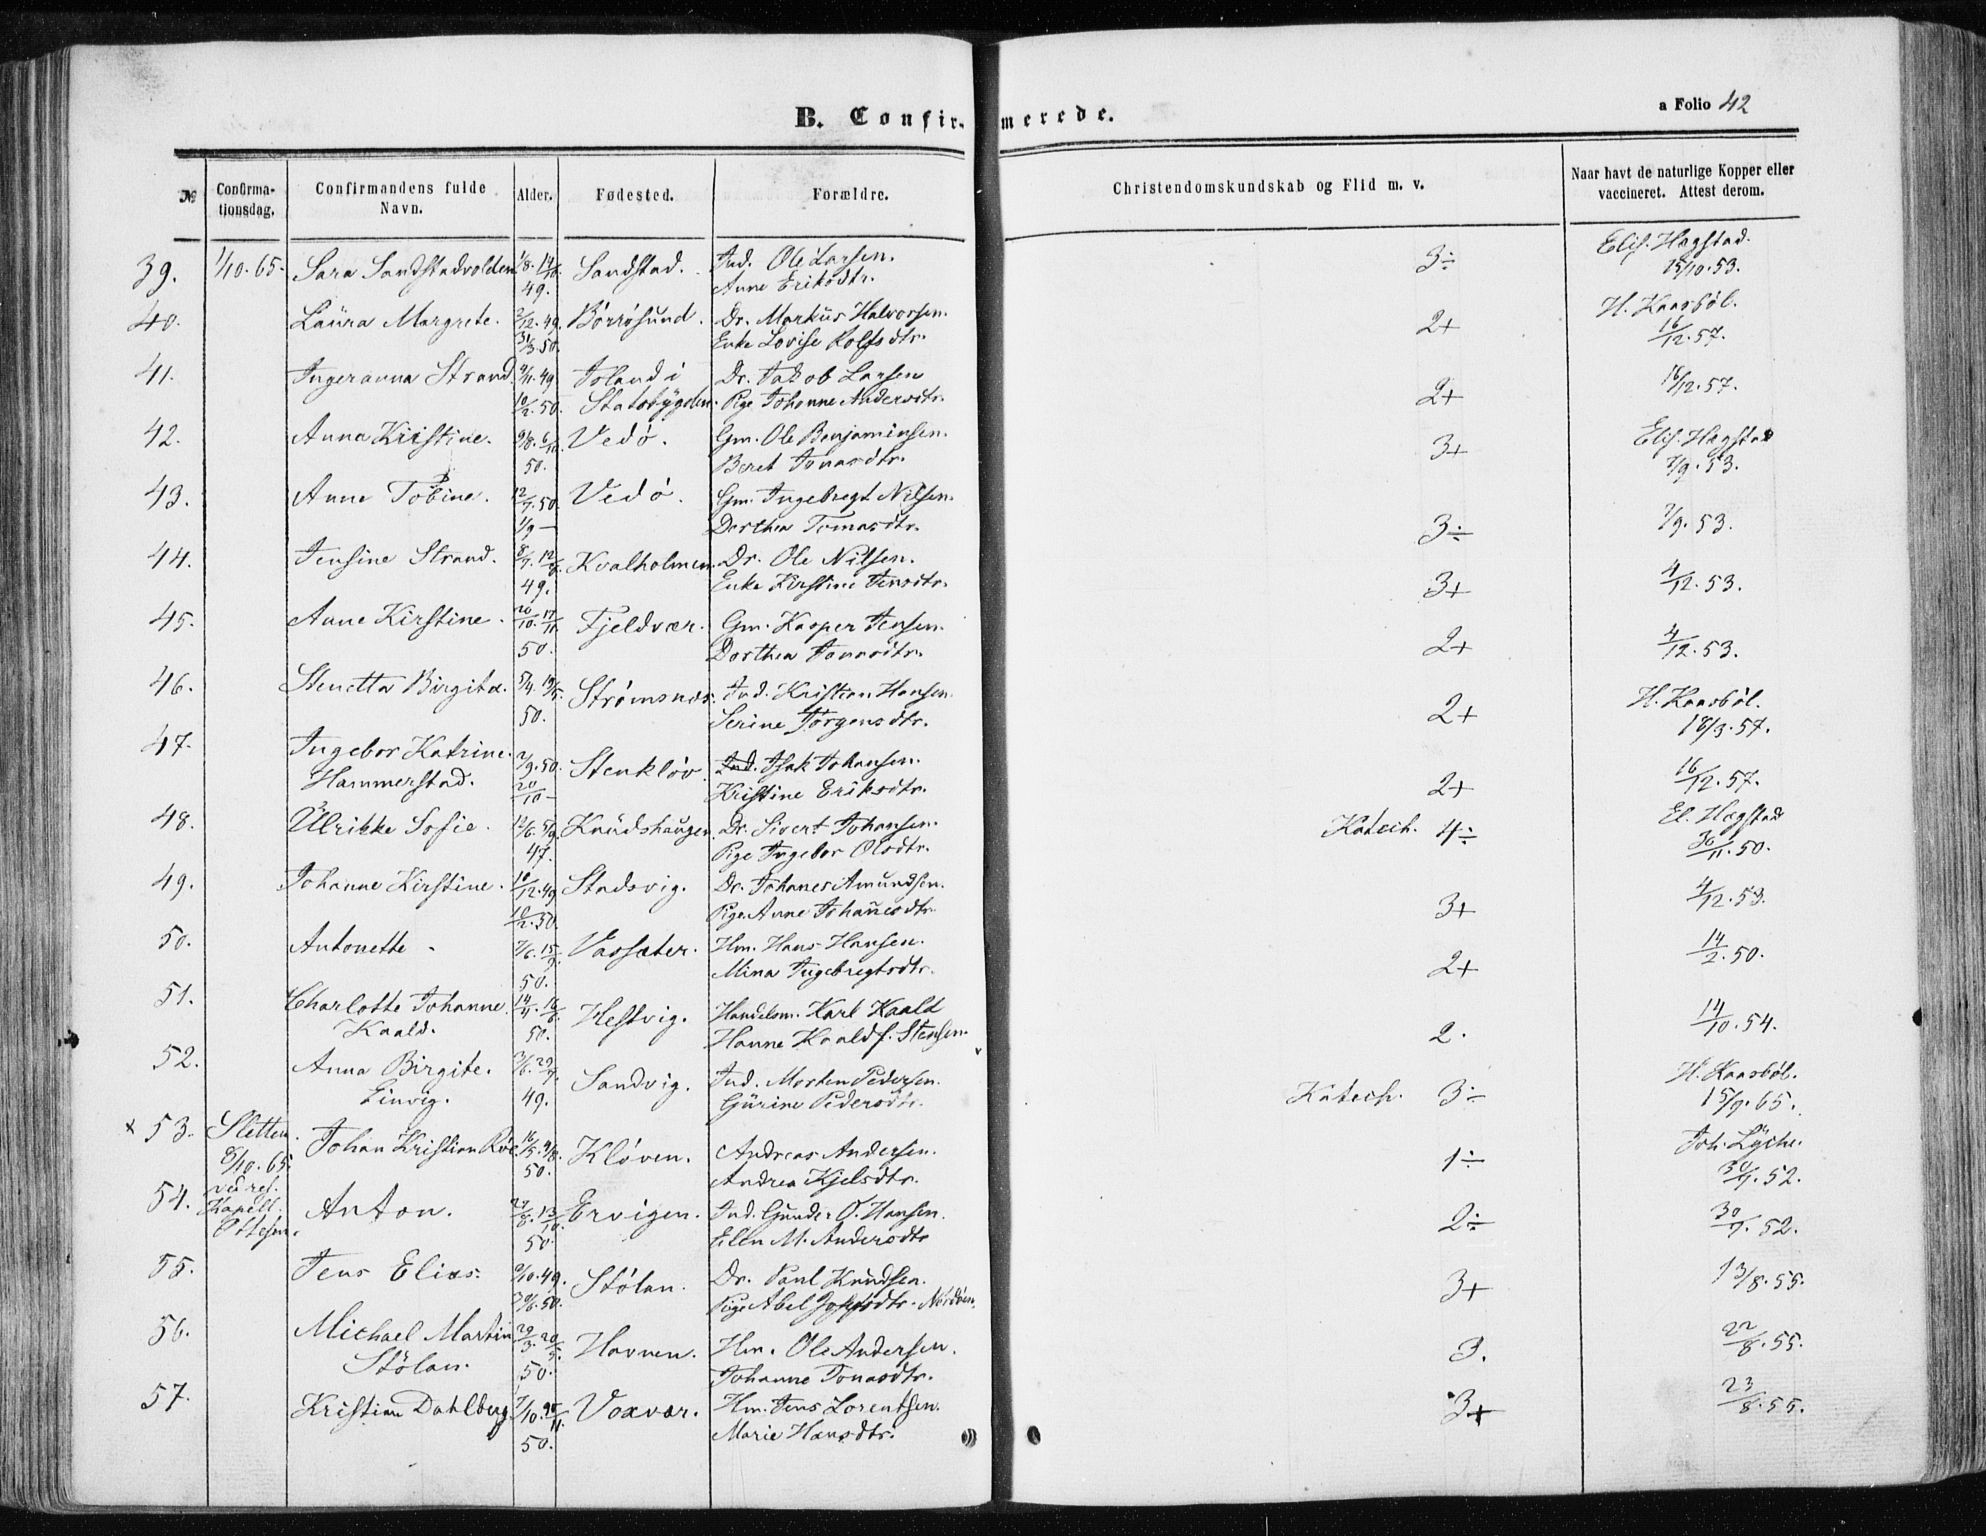 B. Confirmerede.
a Folio 42
№ Confirmationsdag. Confirmandens fulde Navn. Alder. Fødested. Forældre. Christendomskundskab og Flid m. v. Naar havt de naturlige Kopper eller vaccineret. Attest derom.
39. 1/10.65. Sara Sandstadvolden 1/8. 14/10 Sandstad. Ind. Ole Larsen. 3÷ Elis. Hagstad.
49. Anne Eriksdtr. 15/10.53.
40. Laura Margrete. 2/12.49. Börrösund. Dr. Markus Halvorsen. 2+ H. Kaasböl.
31/3.50. Enke Lovise Rolfsdtr. 16/12.57.
41. Ingeranna Strand. 9/11.49. Toland i Dr. Jakob Larsen 2+ 16/12.57.
10/2.50. Statsbygden. Pige Johanne Andersdtr.
42. Anna Kristine. 9/8. 6/10. Vedö. Gm. Ole Benjaminsen. 3+ Elis. Hagstad
50. Beret Jonasdtr. 7/9.53.
43. Anne Tobine. 12/7.50. Vedö. Gm. Ingebregt Nilsen. 3÷ 7/9.53.
1/9 — Dorthea Tomasdtr.
44. Jensine Strand. 8/7. 12/8. Kvalholmen. Dr. Ole Nilsen. 3+ 4/12.53.
49. Enke Kirstine Jensdtr.
45. Anne Kirstine. 20/10. 17/11. Fjeldvær. Gm. Kasper Jensen. 2+ 4/12.53.
50. Dorthea Jonasdtr.
46. Stenetta Birgita. 5/4. 19/5. Strømsnes. Ind. Kristian Hansen. 2+ H. Kaasböl.
50. Serine Jörgensdtr. 18/3.57.
47. Ingebor Katrine 2/9.50. Stenklöv. Ind. Isak Johansen. 2+ 16/12.57.
Hammerstad. 20/10 — Kristine Eriksdtr.
48. Ulrikke Sofie. 12/6. 5/9. Knudshaugen Dr. Sivert Johansen. Katech. 4÷ El. Hagstad
47. Pige Ingebor Olsdtr. 30/11.50.
49. Johanne Kirstine. 10/12.49. Stadsvig. Dr. Johanes Amundsen. 3+ 4/12.53.
10/2.50. Pige Anne Johanesdtr.
50. Antonette 7/6. 15/9. Vassæter. Hm. Hans Hansen. 2+ 14/2.50.
50. Mina Ingebregtsdtr.
51. Charlotte Johanne 14/4. 16/6. Hestvig. Handelsm. Karl Kaald 2. 14/10.54.
Kaald. 50. Hanne Kaald f. Stensen.
52. Anna Birgite. 3/6. 29/7. Sandvig. Ind. Morten Pedersen. Katech. 3÷ H. Kaasböl.
Linvig. 49. Gurine Pedersdtr. 15/9.65.
x 53. Sletten. Johan Kristian Röe. 16/5. 4/8. Klöven. Andreas Andersen. 1÷ Joh. Lyche.
8/10.65. 50. Andrea Kjelsdtr. 30/7.52.
54. ved res. Anton. 27/8. 13/10. Ervigen. Ind. Gunder O. Hansen. 2÷ 30/7.52.
Kapell. Ottesen. 50. Elen M. Andersdtr
55. Jens Elias. 9/10.49. Stölan. Dr. Paul Knudsen. 3+ 13/8.55.
30/6.50. Pige Abel Josefsdtr. Nordöen.
56. Michael Martin 29/3. 20/5. Havnen. Hm. Ole Andersen. 3. 22/8.55.
Stölan. 50. Johanne Jonasdtr.
57. Kristian Dahlberg 7/10. Voxvar. Hm. Jens Lorentsen. 3+ 23/8.55.
50. Marie Hansdtr.